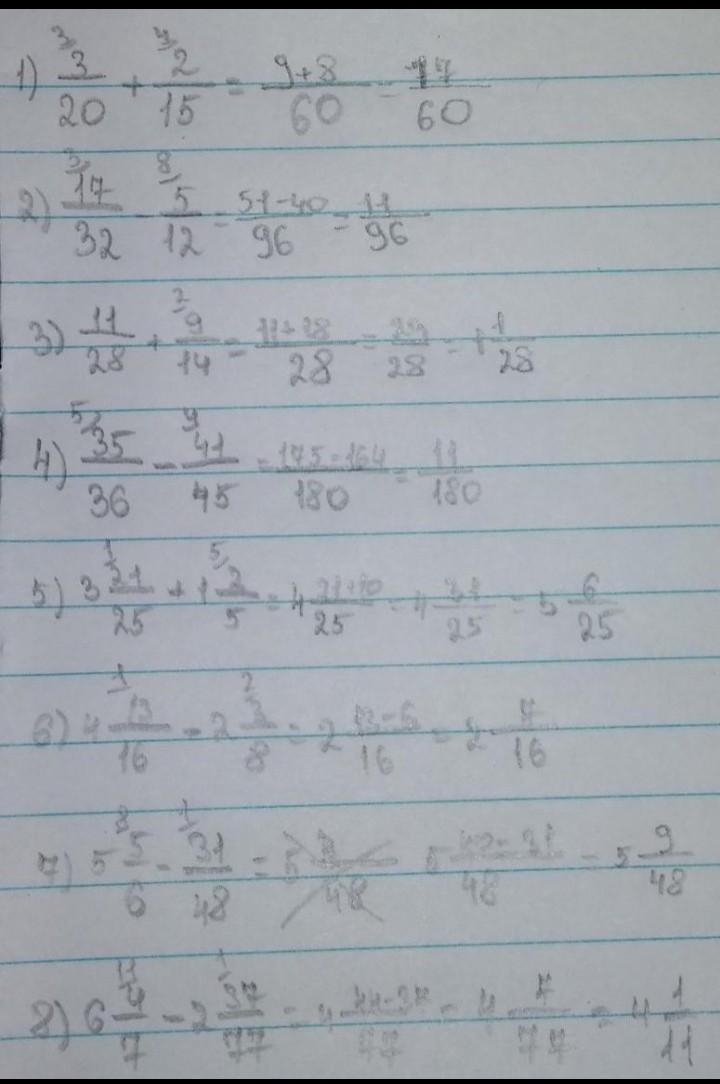 1) 3/20 + 2/15 = 9+8/60 = 17/60
2) 17/32 - 5/12 = 51-40/96 = 11/96
3) 11/28 + 9/14 = 11+18/28 = 29/28 = 1 1/28
4) 35/36 - 41/45 = 175-164/180 = 11/180
5) 3 21/25 + 1 2/5 = 4 21+10/25 = 4 31/25 = 5 6/25
6) 4 13/16 - 2 3/8 = 2 13-6/16 = 2 7/16
7) 5 5/6 - 31/48 = 5 40-31/48 = 5 9/48
8) 6 4/7 - 2 37/77 = 4 44-37/77 = 4 7/77 = 4 1/11